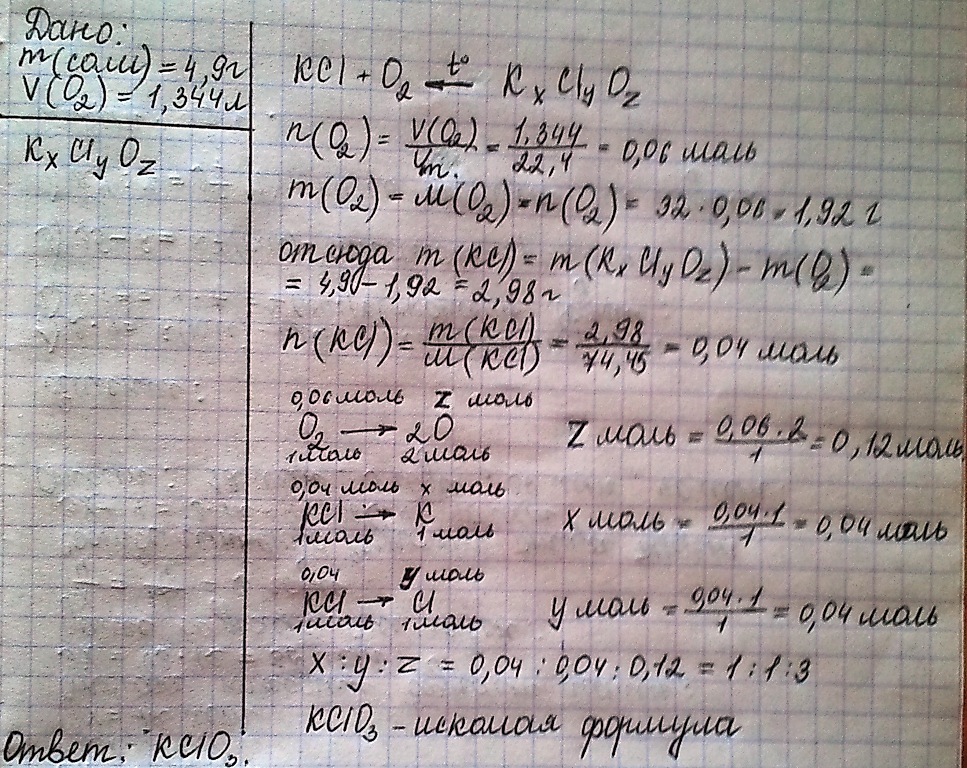 Дано:
m(соли) = 4,9г
V(O₂) = 1,344л
KₓClᵧO_z
KCl + O₂ ←t° KₓClᵧO_z
n(O₂) = V(O₂)/Vm. = 1,344/22,4 = 0,06 моль
m(O₂) = M(O₂) · n(O₂) = 32 · 0,06 = 1,92 г
отсюда m(KCl) = m(KₓClᵧO_z) - m(O₂) =
= 4,90 - 1,92 = 2,98г
n(KCl) = m(KCl)/M(KCl) = 2,98/74,45 = 0,04 моль
0,06моль z моль
O₂ → 2O z моль = 0,06·2/1 = 0,12 моль
1моль 2 моль
0,04 моль x моль
KCl → K x моль = 0,04·1/1 = 0,04 моль
1моль 1 моль
0,04 y моль
KCl → Cl y моль = 0,04·1/1 = 0,04 моль
1моль 1моль
x : y : z = 0,04 : 0,04 : 0,12 = 1 : 1 : 3
KClO₃ - искомая формула
Ответ: KClO₃.